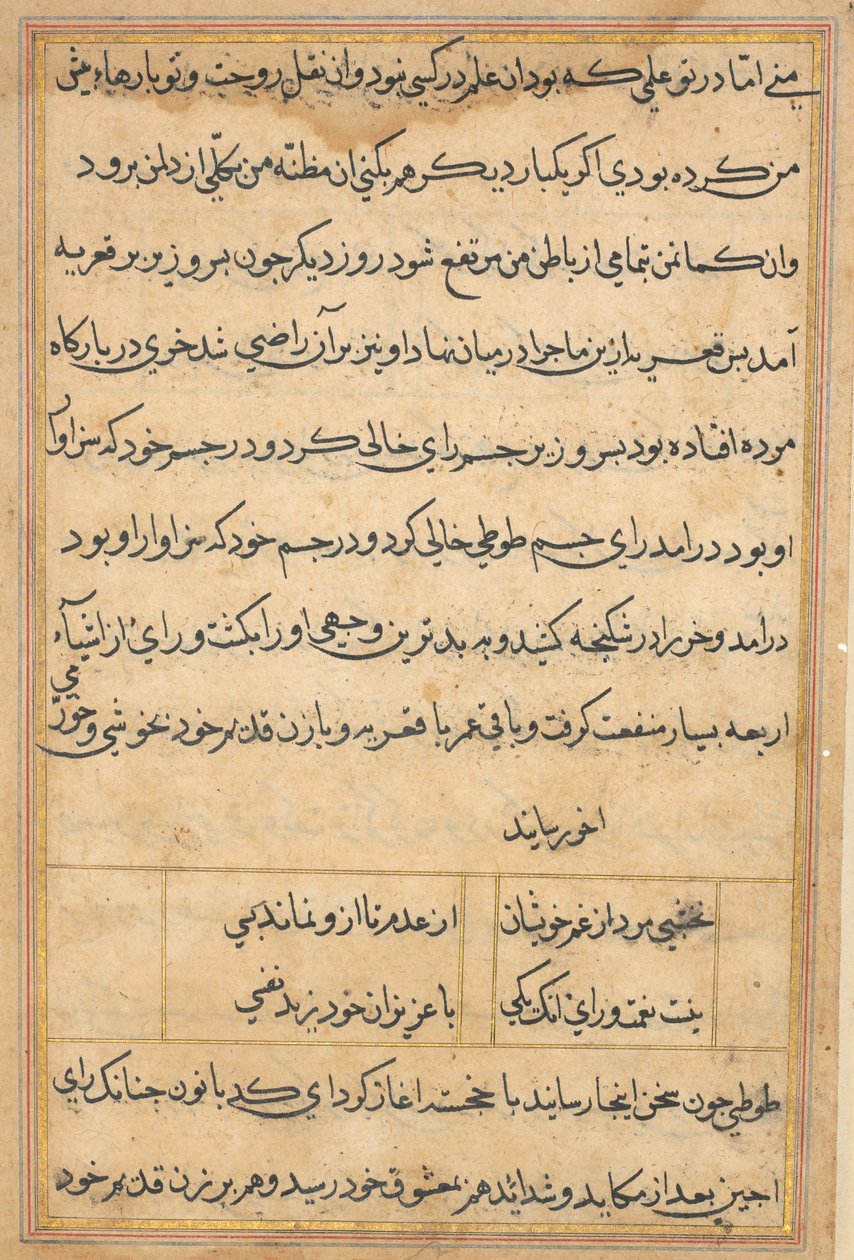 منے امّا در تو علمی که بود ان علم در کسی نبود وان نقل روحت و تو بارها پیش
من کرده بودی اکر یکبار دیکر هم بکنی ان مظنّه من بکلّی از دل من برود
وان کمان من بتمامی از باطن من مرتفع شود روز دیکر جون بس وزیر بر قعریه
آمد بس قعریه ازین ماجرا در میان نهاد او نیز بر آن راضی شد خری در بارکاه
مرده افتاده بود بس وزیر جسم رای خالی کرد و در جسم خود که سزاوار
او بود درامد رای جسم طوطی خالی کرد و در جسم خود که سزاوار او بود
درامد و خر را در شکنجه کشید و به بدترین وجهی او را بکشت و رای از اشیاء
اربعه بسیار منفعت کرفت و باقی عمر با قعریه و با زن قدیم خود بخوشی و خورّمی
اخر رسانید
نخشبی مرد از غم خویشان از عدم تا ازو نماند بسی
نیست نعمت ورای انک یکی با عزیزان خود زید نفسی
طوطی جون سخن اینجا رسانید با خجسته اغاز کرد ای کد بانون جنانک رای
اجین بعد از مکاید و شداید هم بمعشوق خود رسید و هم بر زن قدیم خود